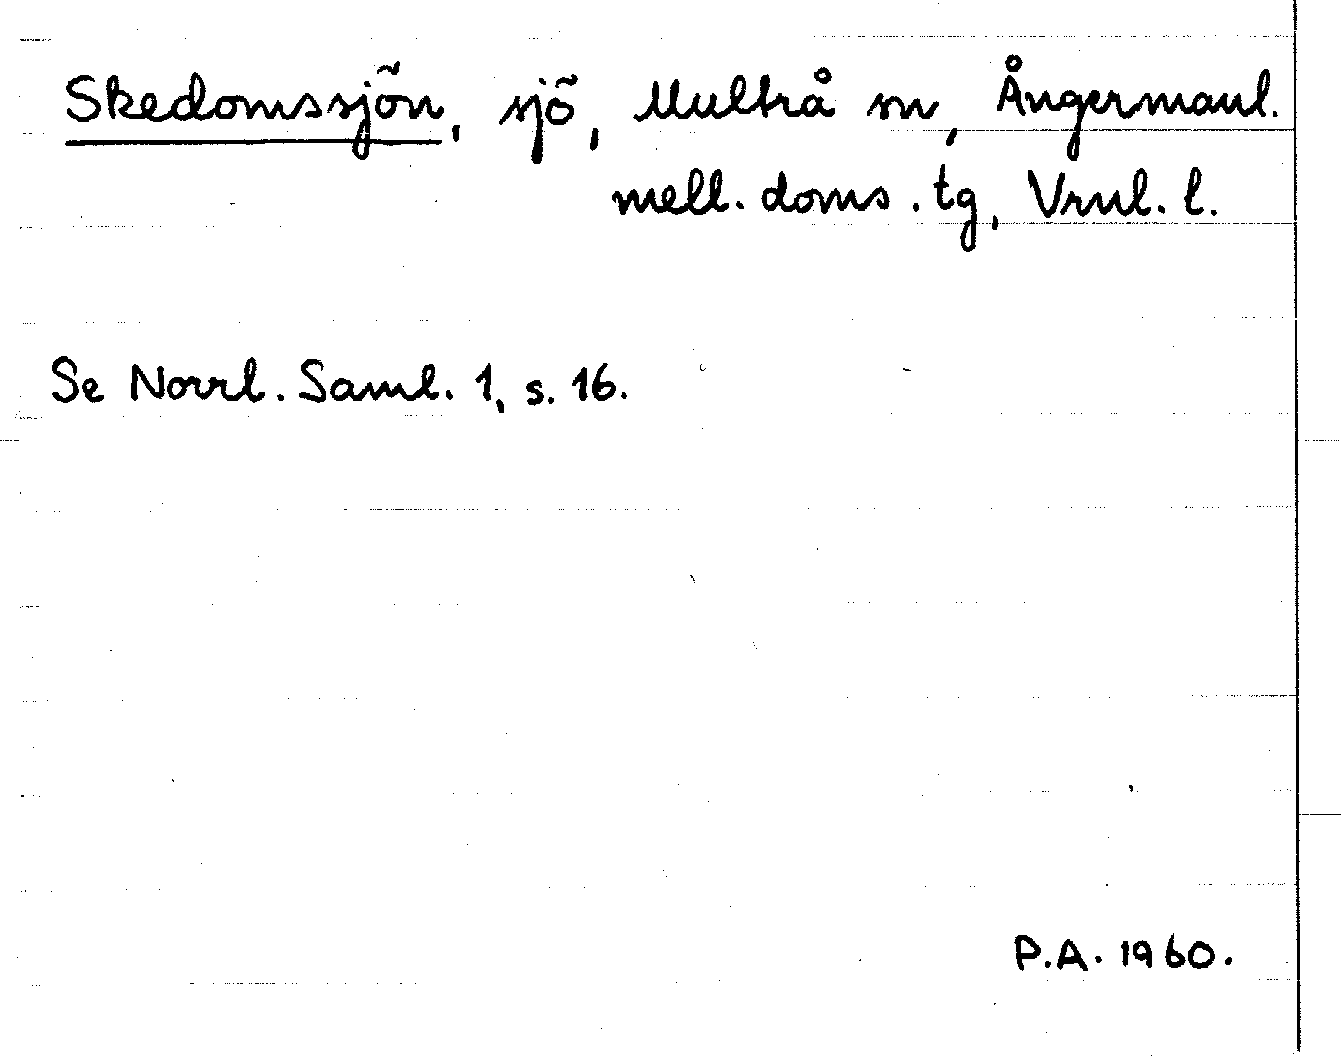 Skedomssjön, sjö, Multrå sn, Ångermanl.
mell. doms. tg, Vrnl. l.
Se Norrl. Saml. 1, s. 16.
P.A. 1960.